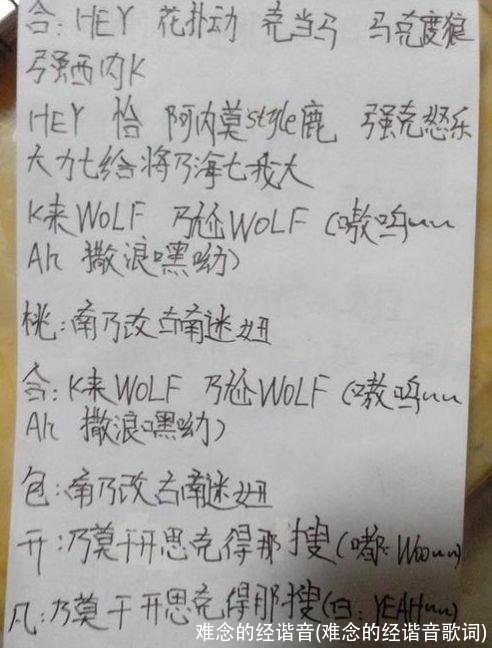 合: HEY 花扑动 克当马 马克度狼
强西内K
HEY 恰 阿内莫style鹿 强克怒乐
大力七给将乃海七我大
K来WOLF 乃尬WOLF (嗷呜~~
Ah 撒浪嘿呦)
桃: 南乃改古南迷妞
合: K来WOLF 乃尬WOLF (嗷呜~~
Ah 撒浪嘿呦)
包: 南乃改古南迷妞
开: 乃莫干开思克得那搜 (嘟: Woo~~)
凡: 乃莫干开思克得那搜 (白: YEAH~~)
难念的经谐音(难念的经谐音歌词)